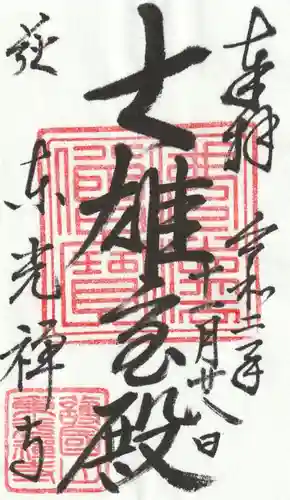 奉拝
令和二年
十一月廿八日
大雄宝殿
萩
東光禅寺